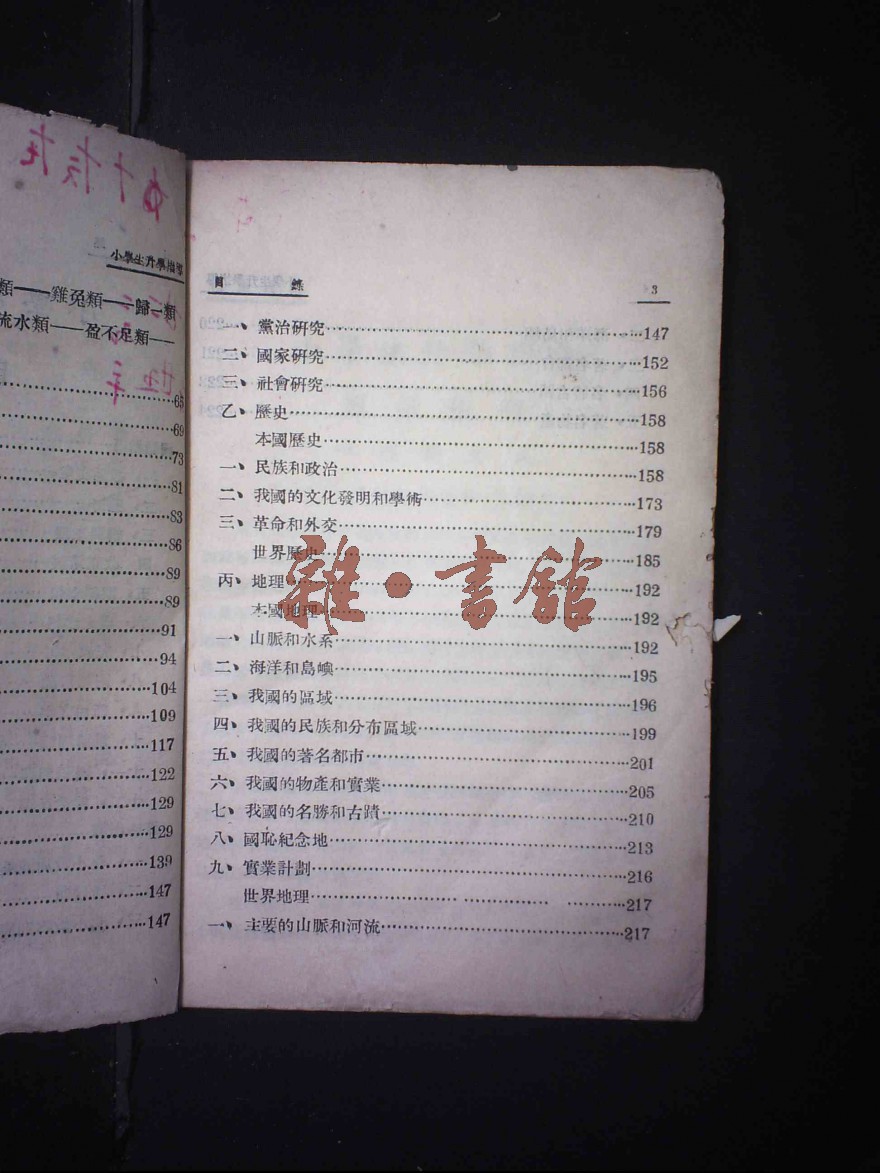 小學生升學指導
類——雞兔類——歸一類
流水類——盈不足類——
65
69
73
81
83
86
89
89
91
94
104
109
117
122
129
129
139
147
147
目 錄 3
一、黨治研究 147
二、國家研究 152
三、社會研究 156
乙、歷史 158
本國歷史 158
一、民族和政治 158
二、我國的文化發明和學術 173
三、革命和外交 179
世界歷史 185
丙、地理 192
本國地理 192
一、山脈和水系 192
二、海洋和島嶼 195
三、我國的區域 196
四、我國的民族和分布區域 199
五、我國的著名都市 201
六、我國的物產和實業 205
七、我國的名勝和古蹟 210
八、國恥紀念地 213
九、實業計劃 216
世界地理 217
一、主要的山脈和河流 217
雜·書館